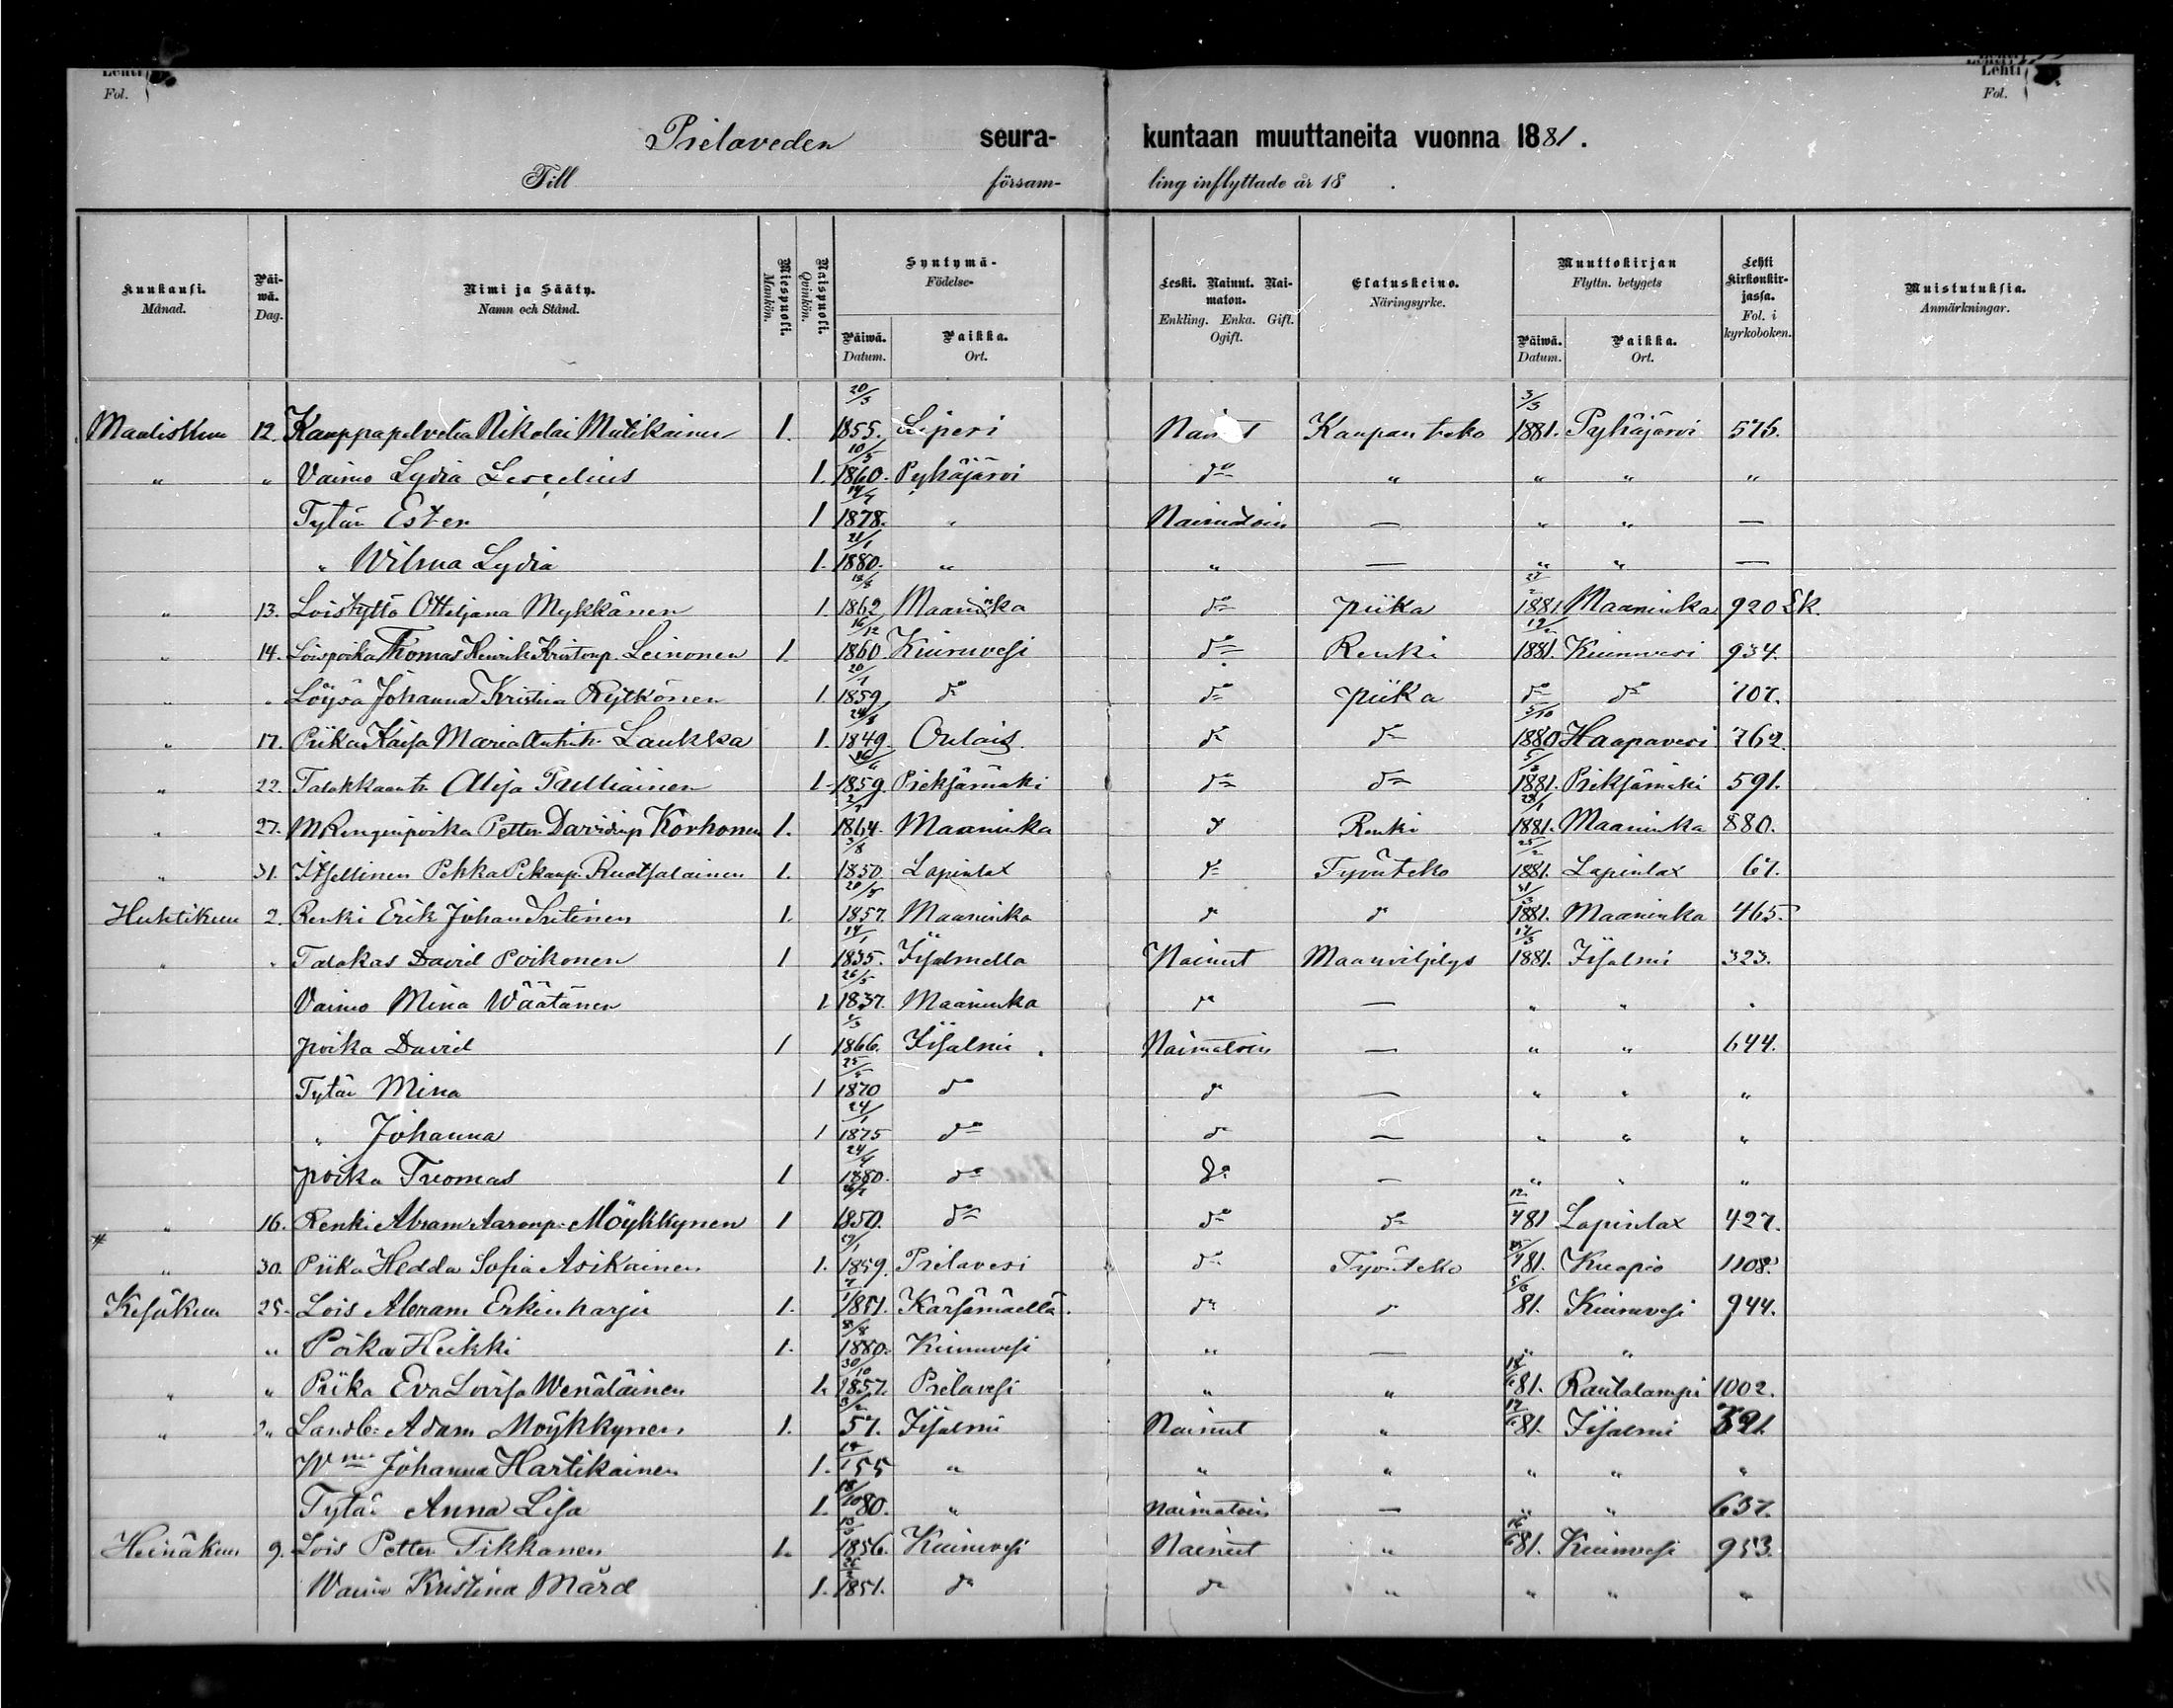 Lehti
Fol.
Lehti
Fol.
Pielaveden seura- kuntaan muuttaneita vuonna 1881.
Till församling inflyttade år 18 .
Kuukausi. Månad. Päiwä. Dag. Nimi ja Sääty. Namn och Stånd. Miespuoli. Mankön. Naispuoli. Qvinkön. Syntymä- Födelse- Päiwä. Datum. Paikka. Ort. Leski. Nainut. Naimaton. Enkling. Enka. Gift. Ogift. Elatuskeino. Näringsyrke. Muuttokirjan Flyttn. betygets Päiwä. Datum. Paikka. Ort. Lehti Kirkonkirjassa. Fol. i kyrkoboken. Muistutuksia. Anmärkningar.
Maaliskuu 12. Kauppapalvelia Nikolai Mutikainen 1. 20/3 1855. Liperi Kaupanteko 3/3 1881. Pyhäjärvi 576.
" " Vaimo Lydia Leselius 1. 10/5 1860. Pyhäjärvi do " " " "
Tytär Ester 1 1878. " Naimatoin — " " —
" Wilma Lydia 1. 21/1 1880. " " — " " —
" 13. Loistyttö Ottiljana Mykkänen 1. 18/8 1862 Maaninka do piika 27/2 1881. Maaninka 920 Lk.
" 14. Loispoika Thomas Henrik Kristoup. Leinonen 1. 16/12 1860 Kiuruvesi do Renki 19/2 1881. Kiuruvesi 934.
" " Löysä Johanna Kristina Rytkönen 1. 20/1 1859 do do piika do do 707.
" 17. Piika Kaisa Maria Antint. Laukka 1. 24/3 1849. Oulais. do do 5/10 1880 Haapavesi 762.
" 22. Talokkaantr. Alisa Pulliainen 1. 1859 Pieksämäki do do 1881. Pieksämäki 591.
" 27. M Renginpoika Petter Davidinp Korhonen 1. 1864. Maaninka do Renki 28/1 1881. Maaninka 880.
" 31. Itsellinen Pekka Pekanp. Ruotsalainen 1. 3/8 1850 Lapinlax do Työnteko 25/2 1881. Lapinlax 67.
Huhtikuu 2. Renki Erik Johan 1. 20/5 1857. Maaninka do do 31/3 1881. Maaninka 465.
" " Talokas David Poikonen 1 14/1 1835. Iisalmella Nainut Maanviljelys 17/3 1881. Iisalmi 323.
Vaimo Mina Wäätänen 1. 26/5 1837. Maaninka do — " " "
poika David 1 1866. Iisalmi. Naimatoin — " " 644.
Tytär Mina 1 1870 do do — " " "
" Johanna 1 24/1 1875 do do — " " "
poika Tuomas 1 24/4 1880. do do — " " "
" 16. Renki Abram Aaronp. Möykkynen 1 1850. do do do 12/4 81 Lapinlax 427.
" 30. Piika Hedda Sofia Asikainen 1. 1859. Pielavesi do Työnteko 81. Kuopio 1108.
Kesäkuu 25. Lois Abram Erkinharju 1. 7/1 1851. Kärsämäellä. do do 5/6 81. Kiuruvesi 944.
" Poika Heikki 1. 8/8 1880. Kiuruvesi " — " "
" " Piika Eva Lovisa Wenäläinen 1. 30/10 1857. Pielavesi " " 81. Rautalampi 1002.
" " Landb: Adam Möykkynen 1. 3/2 57. Iisalmi Nainut " 17/6 81. Iisalmi 391.
Wmo Johanna Hartikainen 1. 55 " " " " " "
Tytär Anna Lisa 1. 18/10 80. " Naimatoin — " " 637.
Heinäkuu 9. Lois Petter Tikkanen 1. 1856. Kiuruvesi Nainut " 16/6 81. Kiuruvesi 953.
Waimo Kristina Mård 1. 1851. do do " " " "